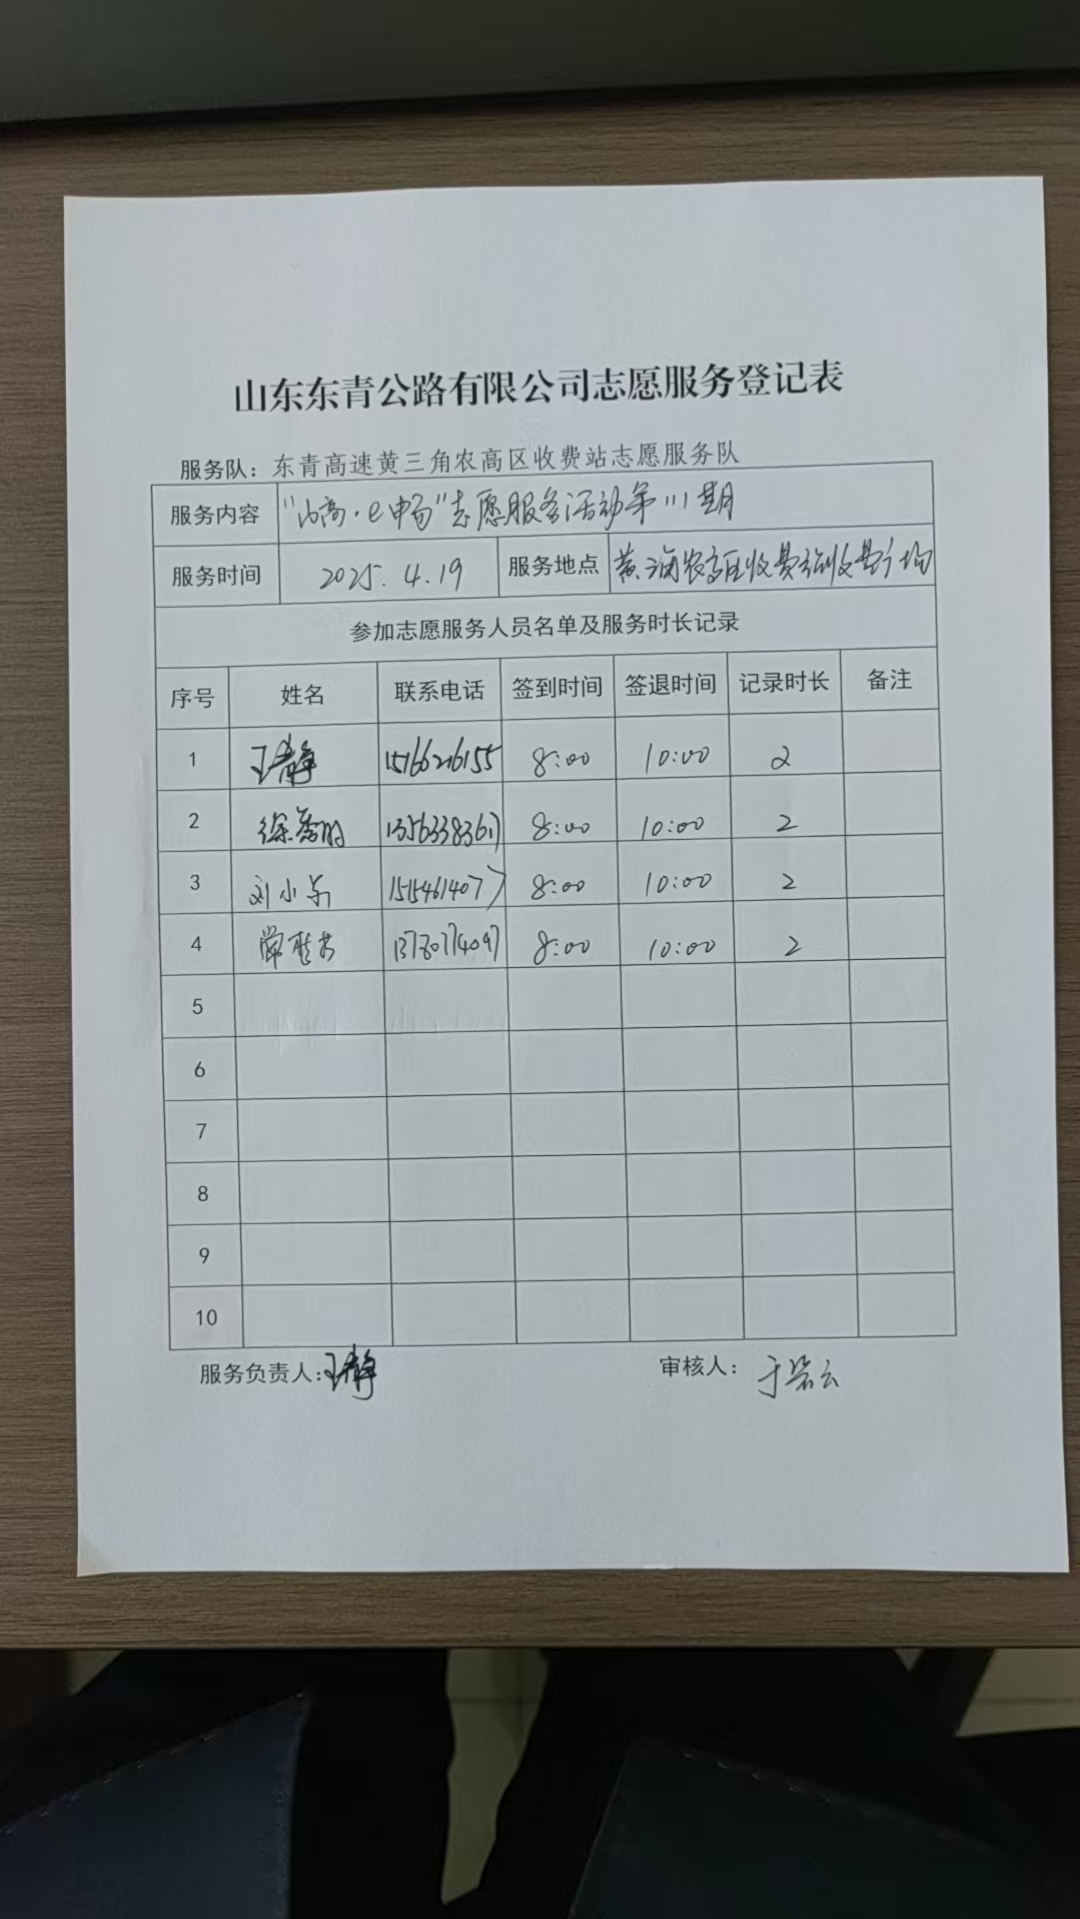 山东东青公路有限公司志愿服务登记表
服务队：东青高速黄三角农高区收费站志愿服务队
服务内容 "山高·e中畅"志愿服务活动第111期
服务时间 2025.4.19 服务地点 农高区收费站收费广场
参加志愿服务人员名单及服务时长记录
序号 姓名 联系电话 签到时间 签退时间 记录时长 备注
1 王静 15166216155 8:00 10:00 2
2 徐 13563383617 8:00 10:00 2
3 刘小东 15154614077 8:00 10:00 2
4 常 8:00 10:00 2
5
6
7
8
9
10
服务负责人：王静 审核人：于 云